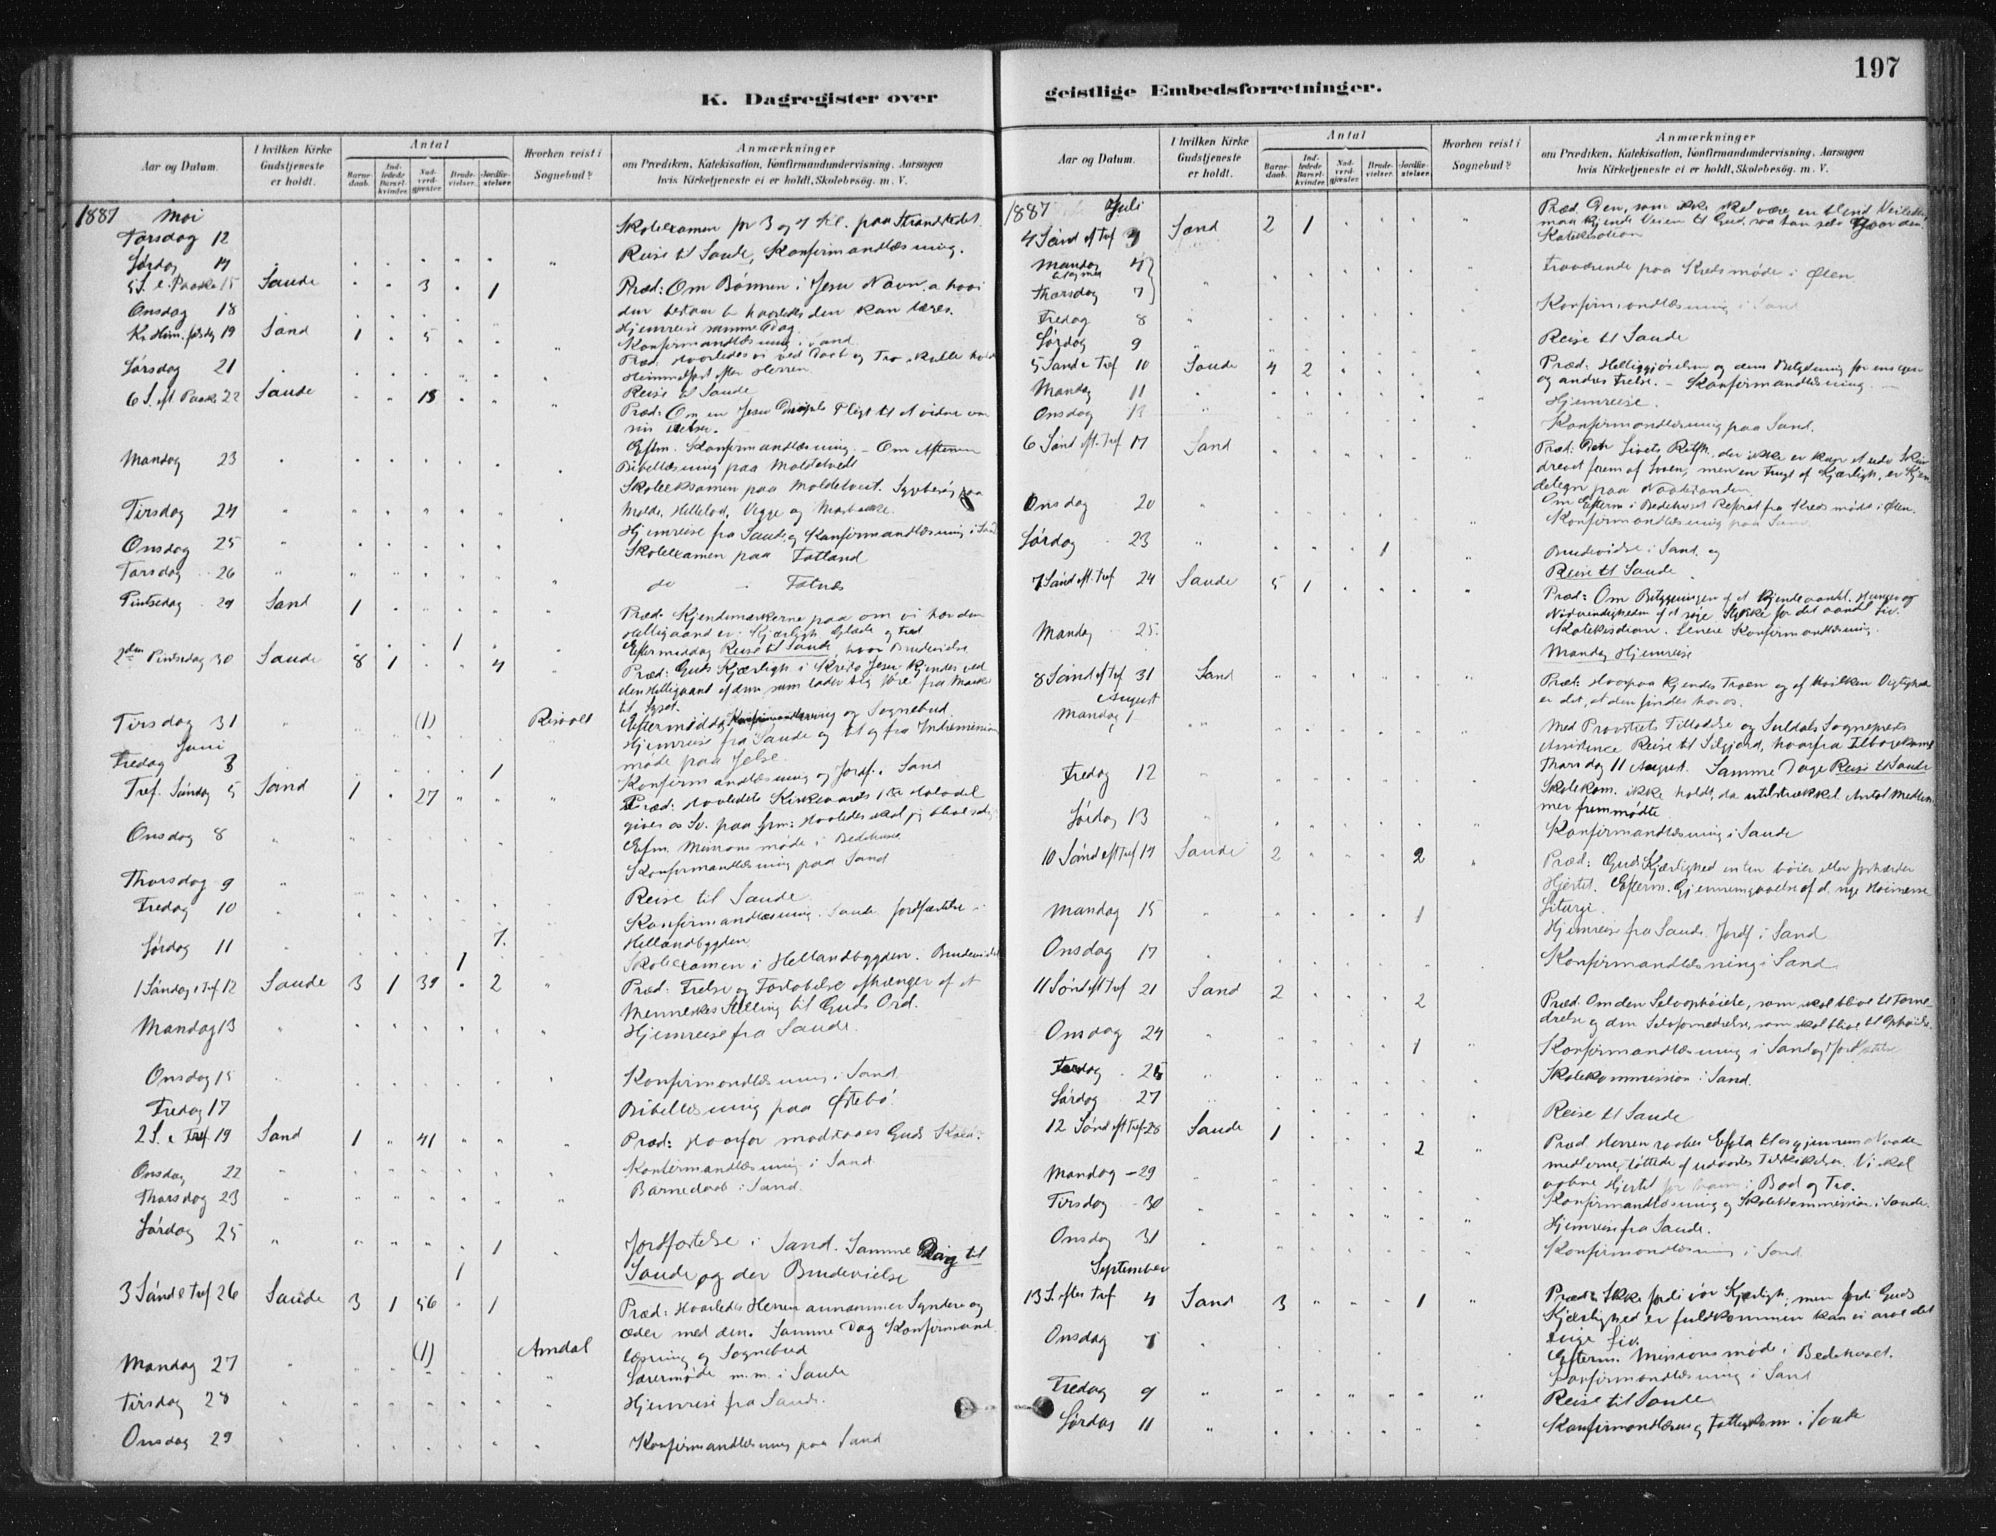 197
K. Dagregister over
geistlige Embedsforretninger.
Aar og Datum.
I hvilken Kirke Gudstjeneste er holdt.
Antal
Barne-daab.
Ind-ledede Barsel-kvinder.
Nad-verd-gjæster.
Brude-vielser.
Jordfæ-stelser.
Hvorhen reist i Sognebud?
Anmærkninger
om Prædiken, Katekisation, Konfirmandundervisning, Aarsagen
hvis Kirketjeneste ei er holdt, Skolebesøg. m. V.
1887 Mai
Torsdag 12 Skolexamen for 3 og 4 Kl. paa Strandstedet
Lørdag 14 Reise til Saude, Konfirmandlæsning.
5 S. e. Paaske 15 Saude 3 1 Præd: Om Bønnen i Jesu Navn, a hvori
Onsdag 18 den bestaar b hvorledes den kan læres.
Hjemreise samme Dag.
Kr. Him.førsdag 19 Sand 1 5 Konfirmandlæsning i Sand
Præd. Hvorledes vi ved Daab og Tro skulle holde
Himmelfart efter Herren
Lørsdag 21 Reise til Saude
6 S. eft Paaske 22 Saude 13 Præd: Om en Jesu Disipels Pligt til at vidne om
sin
Eftm. Konfirmandlæsning. – Om Aftenen
Mandag 23 Bibellæsning paa Moldetvedt
Skoleeksamen paa Moldetvedt. Sygebesøg paa
Tirsdag 24 Molde, Hellelod, Vegge og
Hjemreise fra Saude og Konfirmandlæsning i Sand
Onsdag 25 Skolexamen paa Fatland
Torsdag 26 do – Fatnes
Pintsedag 29 Sand 1 Præd: Kjendemærkerne paa om vi har den
Helligaand er: Kjærligh Glæde og Fred
1 Eftermiddag Reise til Saude, hvor Brudevielse
2den Pintsedag 30 Saude 8 1 4 Præd: Guds Kjærligh i Kristo Jesu kjendes ved
den Helligaand af dem som lader sig føre fra Mørket
til Lyset.
Tirsdag 31 (1) Risvold Eftermiddag Konfirmandlæsning og Sognebud
Juni Hjemreise fra Saude og til og fra Indremissions
Fredag 3 møde paa Jelse.
1 Konfirmandlæsning og Jordf. i Sand
Tref. Søndag 5 Sand 1 27 Præd: Hvorledes Kirkeaarets 1ste Halvdel
gives os Sv. paa Spm: Hvorledes skal jeg blive salig
Onsdag 8 Efm. Missionsmøde i Bedehuset
Konfirmandlæsning paa Sand
Thorsdag 9 Reise til Saude
Fredag 10 Konfirmandlæsning Saude Jordfæstelse i
7. Hellandbygden
Lørdag 11 1 Skolexamen i Hellandbygden. Brudevielse
1 Søndag e Tref 12 Saude 3 1 39 2 Præd: Frelse og Fortabelse afhænger af et
Menneskes Stilling til Guds Ord.
Mandag 13 Hjemreise fra Saude.
Onsdag 15 Konfirmandlæsning i Sand
Fredag 17 Bibellæsning paa Østebø
2 S. e Tref. 19 Sand 1 41 Præd: Hvorfor modtages Guds
Onsdag 22 Konfirmandlæsning i Sand
Thorsdag 23 Barnedaab i Sand.
Lørdag 25 1 Jordfæstelse i Sand. Samme Dag til
1 Saude og der Brudevielse
3 Sønd e Tref 26 Saude 3 1 56 1 Præd: Hvorledes Herren annammer Syndere og
æder med dem. Samme Dag Konfirmand
(1) Amdal læsning og Sognebud
Mandag 27 Lærermøde m.m. i Saude
Tirsdag 28 Hjemreise fra Saude.
Onsdag 29 Konfirmandlæsning paa Sand
Aar og Datum.
I hvilken Kirke Gudstjeneste er holdt.
Antal
Barne-daab.
Ind-ledede Barsel-kvinder.
Nad-verd-gjæster.
Brude-vielser.
Jordfæ-stelser.
Hvorhen reist i Sognebud?
Anmærkninger
om Prædiken, Katekisation, Konfirmandundervisning, Aarsagen
hvis Kirketjeneste ei er holdt, Skolebesøg. m. V.
1887 Juli
4 Sønd ef Tref 3 Sand 2 1 Præd. Den, som ikke skal være en blind Veileder
maa kjende Veien til Gud, saa han selv gaar den.
Katekisation
Mandag 4
til og med
Thorsdag 7 Fraværende paa Kredsmøde i Ølen
Fredag 8 Konfirmandlæsning i Sand
Lørdag 9 Reise til Saude
5 Sønd e Tref 10 Saude 4 2 Præd: Helliggjørelsen og dens Betydning for ens egen
og andres Frelse. – Konfirmandlæsning. –
Mandag 11 Hjemreise.
Onsdag 13 Konfirmandlæsning paa Sand.
6 Sønd eft. Tref 17 Sand Præd. Den Livets Retfh. der ikke er kun et udv.
af Loven, men en Frugt af Kjærligh. er Kjen
detegn paa Naadestanden
Om Efterm i Bedehuset Referat fra Kredsmødet i Ølen.
Onsdag 20 Konfirmandlæsning paa Sand
Lørdag 23 1 Brudevielse i Sand og
Reise til Saude
7 Sønd eft. Tref 24 Saude 5 1 Præd: Om Betydningen af et kjende aandl. Hunger og
Nødvendigheden af at søge Føde for det aandl Liv.
Katekisation. Senere Konfirmandlæsning.
Mandag 25 Mandag Hjemreise
8 Sønd ef Tref 31 Sand Præd: Hvorpaa kjendes Troen og af hvilken Vigtighed
er det, at den findes hos os.
August
Mandag 1 Med Provstiets Tilladelse og Suldals Sognepræsts
Assistence Reise til Silgjord, hvorfra Tilbagekomst
Thorsdag 11 August. Samme Dage Reise til Saude
Fredag 12 Skolekom. ikke holdt, da utilstrækkel. Antal Medlem-
mer fremmødte
Lørdag 13 Konfirmandlæsning i Saude
10 Sønd eft Tref 14 Saude 2 2 Præd: Guds Kjærlighed enten bøier eller forhærder
Hjertet. Efterm. Gjennemgaaelse af d. nye Høimesse
Liturgi.
Mandag 15 1 Hjemreise fra Saude. Jordf. i Sand
Onsdag 17 Konfirmandlæsning i Sand.
11 Sønd eft Tref 21 Sand 2 2 Præd. Om den Selvophøielse, som skal blive til Forne
drelse og den Selvfornedrelse, som skal blive til Ophøielse.
Onsdag 24 1 Konfirmandlæsning i Sand og Jordfæstelse
Fredag 26 Skolekommission i Sand.
Lørdag 27 Reise til Saude
12 Sønd eft Tref 28 Saude 1 2 Præd Herren raaber Effata til os gjennem Naade-
medlerne, støttede af udvortes Tilskikkelser. Vi skal
Mandag – 29 aabne Hjertet for ham i Bod og Tro.
Konfirmandlæsning og Skolekommission i Saude.
Tirsdag – 30 Hjemreise fra Saude.
Onsdag 31 Konfirmandlæsning i Sand
September
13 S. efter Tref 4 Sand 3 1 Præd: Ikke fordi vor Kjærligh, men fordi Guds
Kjærlighed er fuldkommen kan vi arve det
evige Liv.
Efterm. Missionsmøde i Bedehuset.
Onsdag 7 Konfirmandlæsning i Sand
Fredag 9 Reise til Saude
Lørdag 11 Konfirmandlæsning og Fattigkom. i Saude